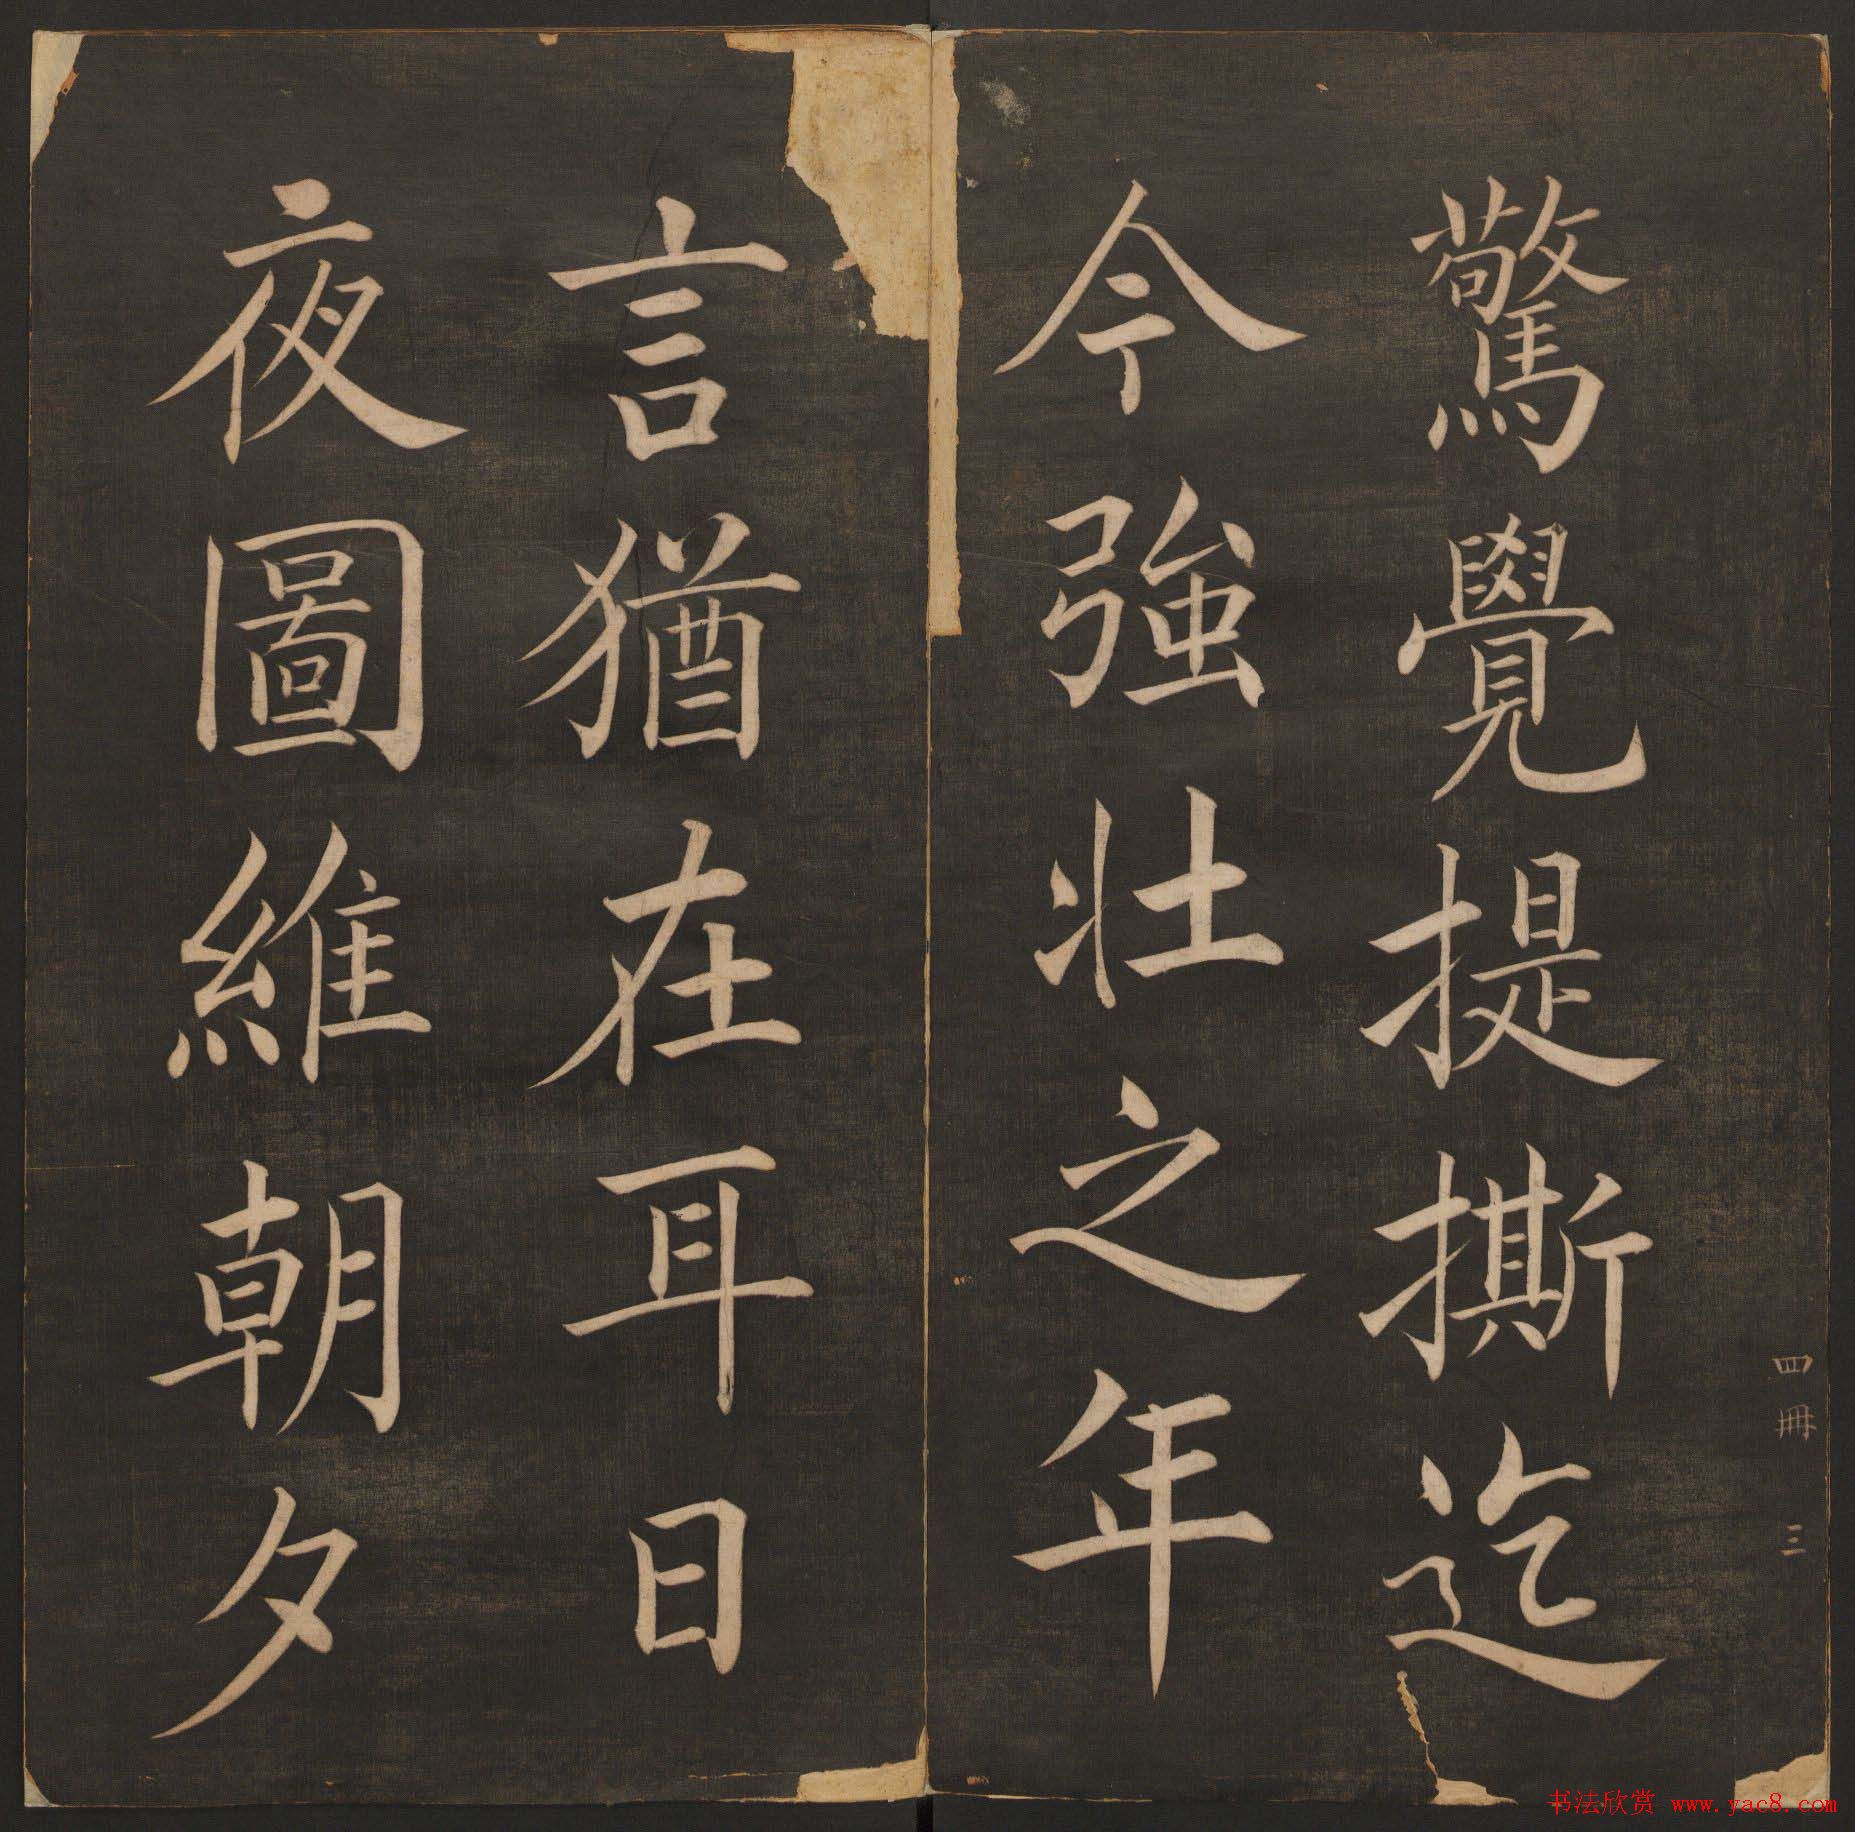 四冊 三
驚覺提撕迄
今強壯之年
言猶在耳日
夜圖維朝夕
书法欣赏 www.yac8.com